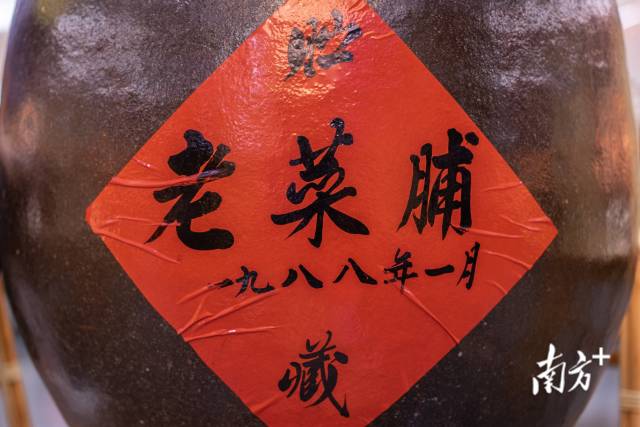 老菜脯
一九八八年一月
藏
南方+